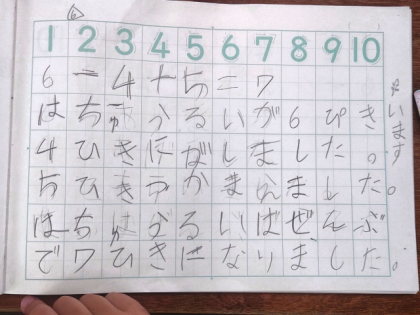 6
1 2 3 4 5 6 7 8 9 10
6－4＋5＝7
はちゅうるいが6ぴきいます。
4ひきにがしました。
5ひきつかまえました。
はちゅうるいはぜんぶ
で7ひきになりました。